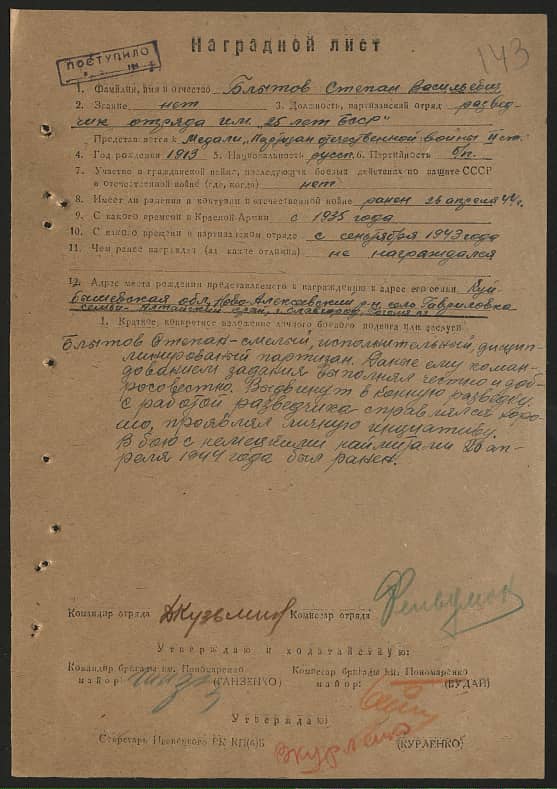 Наградной лист
143
ПОСТУПИЛО
1. Фамилия, имя и отчество Блытов Степан Васильевич
2. Звание нет 3. Должность, партизанский отряд развед-
чик отряда им. "25 лет БССР"
Представляется к Медали "Партизан отечественной войны II ст.
4. Год рождения 1913 5. Национальность русск. 6. Партийность б/п.
7. Участие в гражданской войне, последующих боевых действиях по защите СССР
и отечественной войне (где, когда) нет
8. Имеет ли ранения и контузии в отечественной войне ранен 26 апреля 44 г.
9. С какого времени в Красной Армии с 1935 года
10. С какого времени в партизанском отряде с сентября 1943 года
11. Чем ранее награжден (за какие отличия) не награждался
12. Адрес места рождения представляемого к награждению и адрес его семьи Куй-
бышевская обл, Ново-Алексеевский р-н, село Гавриловка
семья-Алтайский край, г. Славгород,
1. Краткое, конкретное изложение личного боевого подвига или заслуги
Блытов Степан-смелый, исполнительный, дисцип-
линированый партизан. Даные ему коман-
дованием задания выполнял честно и доб-
росовестно. Выдвинут в конную разведку,
с работой разведчика справлялся хоро-
шо, проявлял личную инициативу.
В бою с немецкими наймитами 26 ап-
реля 1944 года был ранен.
Командир отряда Дкузьмин Комиссар отряда
Утверждаю и ходатайствую:
Командир бригады им. Пономаренко Комиссар бригады им. Пономаренко
майор (ГАНЗЕНКО) майор: (БУДАЙ)
Утверждаю:
Секретарь Ивенецкого РК КП(б)Б (КУРЛЕНКО)